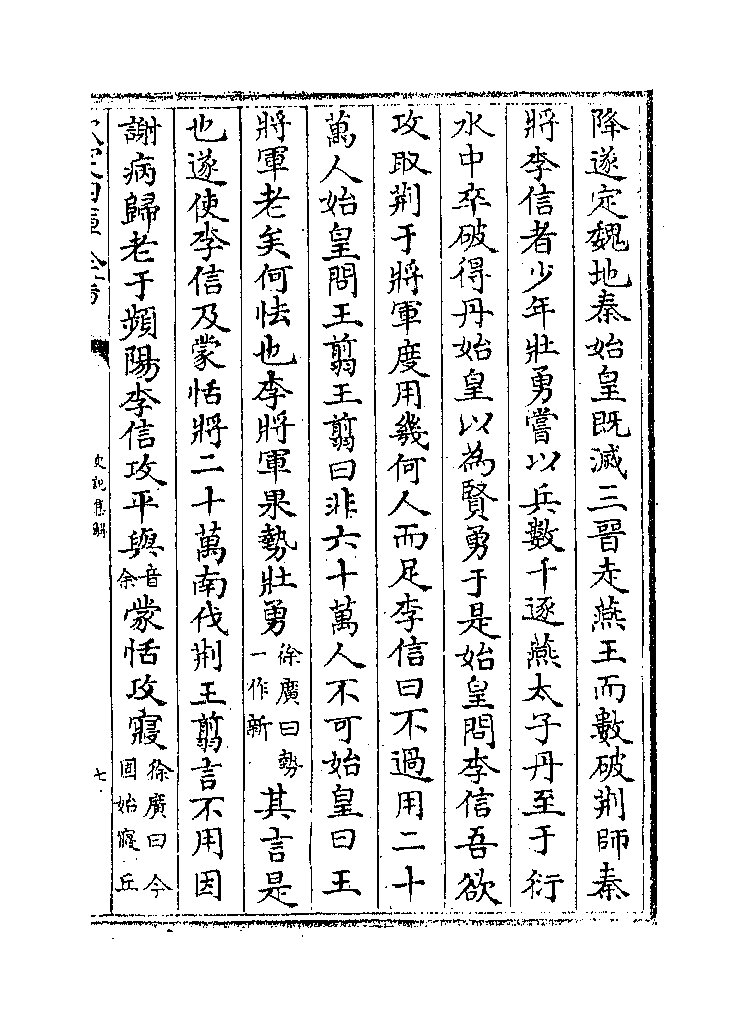 降遂定魏地秦始皇既滅三晉走燕王而數破荆師秦
將李信者少年壯勇嘗以兵數千逐燕太子丹至于衍
水中卒破得丹始皇以為賢勇于是始皇問李信吾欲
攻取荆于將軍度用幾何人而足李信曰不過用二十
萬人始皇問王翦王翦曰非六十萬人不可始皇曰王
將軍老矣何怯也李將軍果勢壯勇徐廣曰勢一作新其言是
也遂使李信及蒙恬將二十萬南伐荆王翦言不用因
謝病歸老于頻陽李信攻平與音余蒙恬攻寢徐廣曰今固始寢丘
史記集解
七